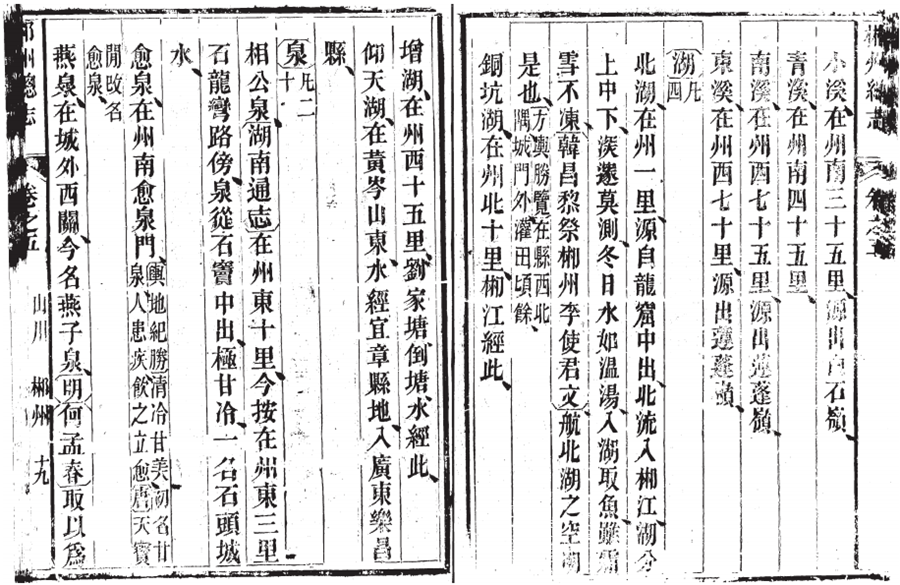 郴州總志 卷之五
小溪在州南三十五里源出白石嶺
青溪在州南四十五里
南溪在州西七十五里源出蓮蓬嶺
東溪在州西七十里源出蓮蓬嶺
湖凡四
北湖在州一里源自龍窟中出北流入郴江湖分
上中下深邃莫測冬日水如溫湯入湖取魚雖霜
雪不凍韓昌黎祭郴州李使君文航北湖之空明
是也方輿勝覽在縣西北
隅城門外灌田頃餘
銅坑湖在州北十里郴江經此
增湖在州西十五里劉家塘倒塘水經此
仰天湖在黃岑山東水經宜章縣地入廣東樂昌
縣
泉凡二十
相公泉湖南通志在州東十里今按在州東三里
石龍彎路傍泉從石竇中出極甘冷一名石頭城
水
愈泉在州南愈泉門輿地紀勝清冷甘美初名甘
泉人患疾飲之立愈唐天寶
閒改名
愈泉
燕泉在城外西關今名燕子泉明何孟春取以爲
郴州總志 卷之五 山川 郴州 十九